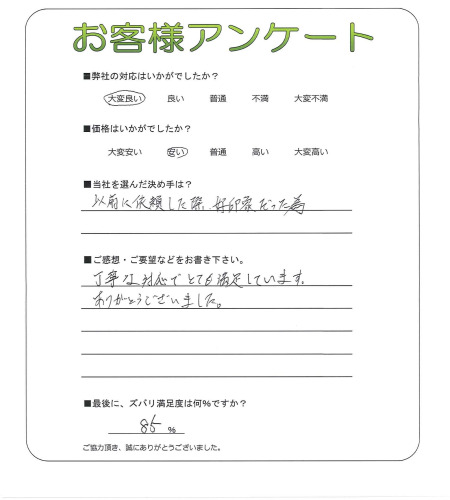 お客様アンケート
■弊社の対応はいかがでしたか?
大変良い 良い 普通 不満 大変不満
■価格はいかがでしたか?
大変安い 安い 普通 高い 大変高い
■当社を選んだ決め手は?
以前に依頼した際、好印象だった為
■ご感想・ご要望などをお書き下さい。
丁寧な対応でとても満足しています。
ありがとうございました。
■最後に、ズバリ満足度は何%ですか?
85 %
ご協力頂き、誠にありがとうございました。